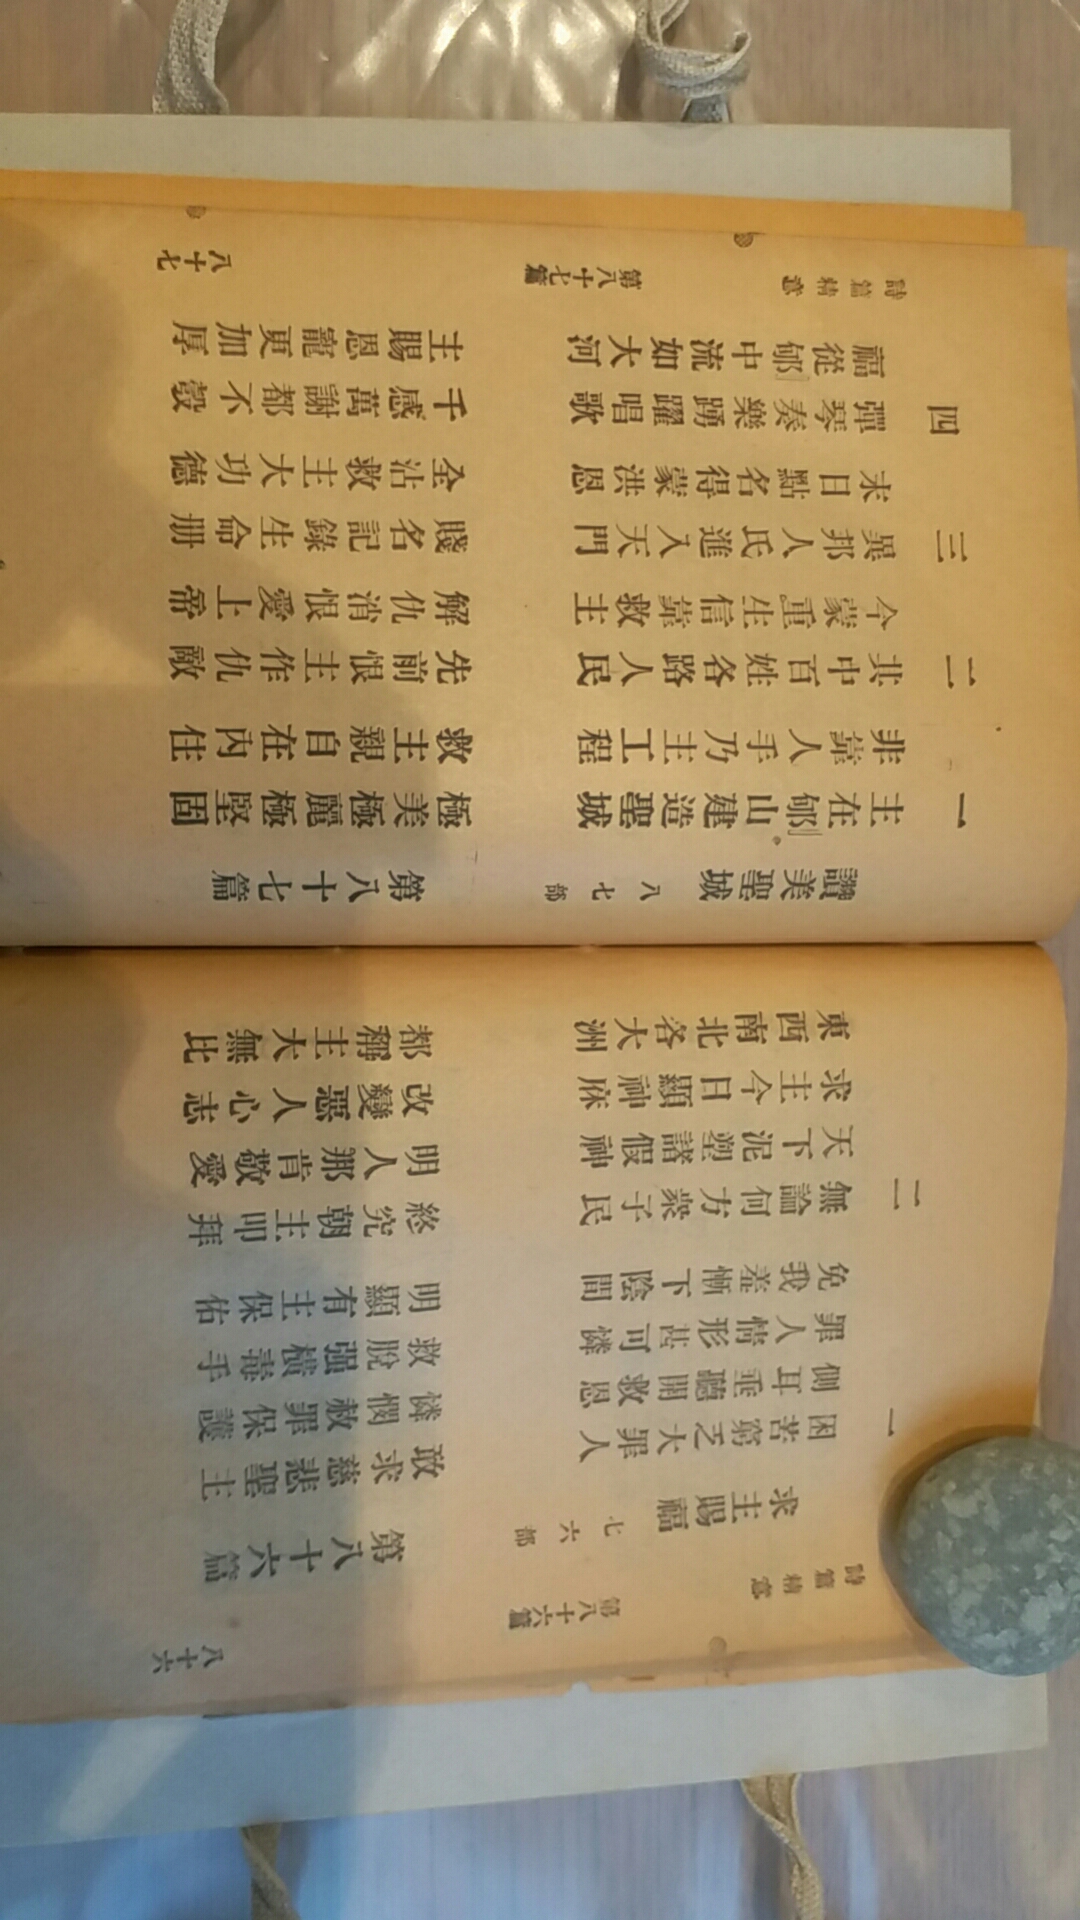 詩篇精意 第八十六篇 八十六
求主賜福 七六部 第八十六篇
一 困苦窮乏大罪人 敢求慈悲聖主
側耳垂聽開救恩 憐憫赦罪保護
罪人情形甚可憐 救脫强橫毒手
免我羞慚下陰間 明顯有主保佑
二 無論何方衆子民 終究朝主叩拜
天下泥塑諸假神 明人那肯敬愛
求主今日顯神庥 改變惡人心志
東西南北各大洲 都稱主大無比
讚美聖城 八七部 第八十七篇
一 主在郇山建造聖城 極美極麗極堅固
非靠人手乃主工程 救主親自在內住
二 其中百姓各路人民 先前恨主作仇敵
今蒙重生信靠救主 解仇消恨愛上帝
三 異邦人氏進入天門 賤名記錄生命册
末日點名得蒙洪恩 全沾救主大功德
四 彈琴奏樂踴躍唱歌 千感萬謝都不彀
福從郇中流如大河 主賜恩寵更加厚
詩篇精意 第八十七篇 八十七